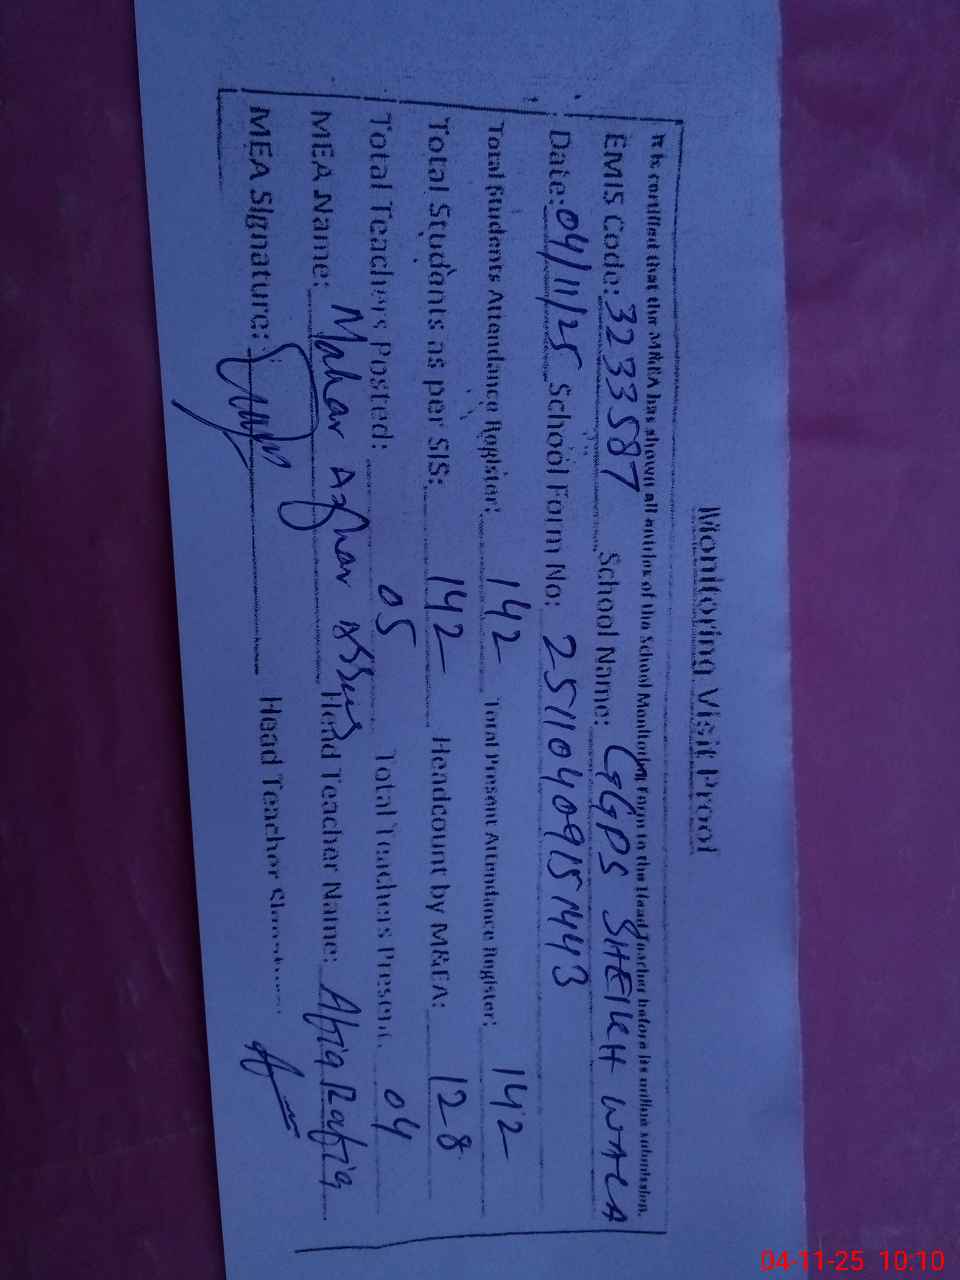 Monitoring Visit Proof
It is certified that the M&EA has shown all entries of the School Monitoring Form to the Head Teacher before its online submission.
EMIS Code: 3233587 School Name: GGPS SHEIKH WALA
Date: 04/11/25 School Form No: 25110409151443
Total Students Attendance Register: 142 Total Present Attendance Register: 142
Total Students as per SIS: 142 Headcount by M&EA: 128
Total Teachers Posted: 05 Total Teachers Present: 04
MEA Name: Mahar Azhar Head Teacher Name: Afia Rafiq
MEA Signature: Head Teacher
04-11-25 10:10